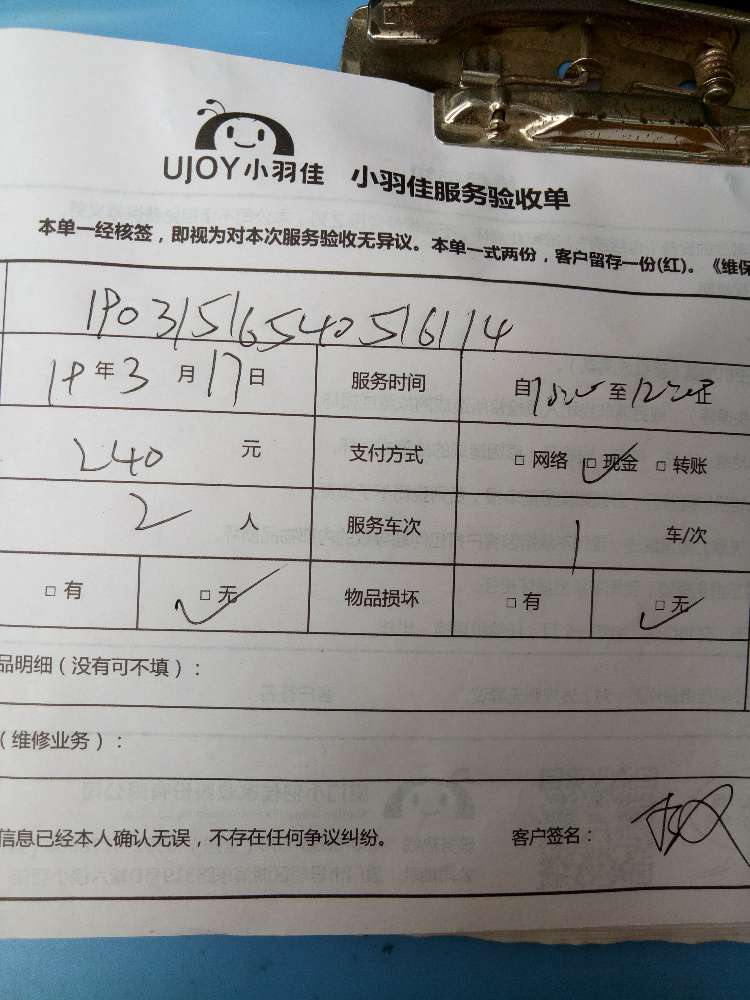 UJOY小羽佳 小羽佳服务验收单
本单一经核签，即视为对本次服务验收无异议。本单一式两份，客户留存一份(红)。《维保
19031516540516114
19年3月17日 服务时间 自 至
240元 支付方式 □ 网络 □ 现金 □ 转账
2人 服务车次 1车/次
□ 有 □ 无 物品损坏 □ 有 □ 无
品明细（没有可不填）：
（维修业务）：
信息已经本人确认无误，不存在任何争议纠纷。 客户签名：